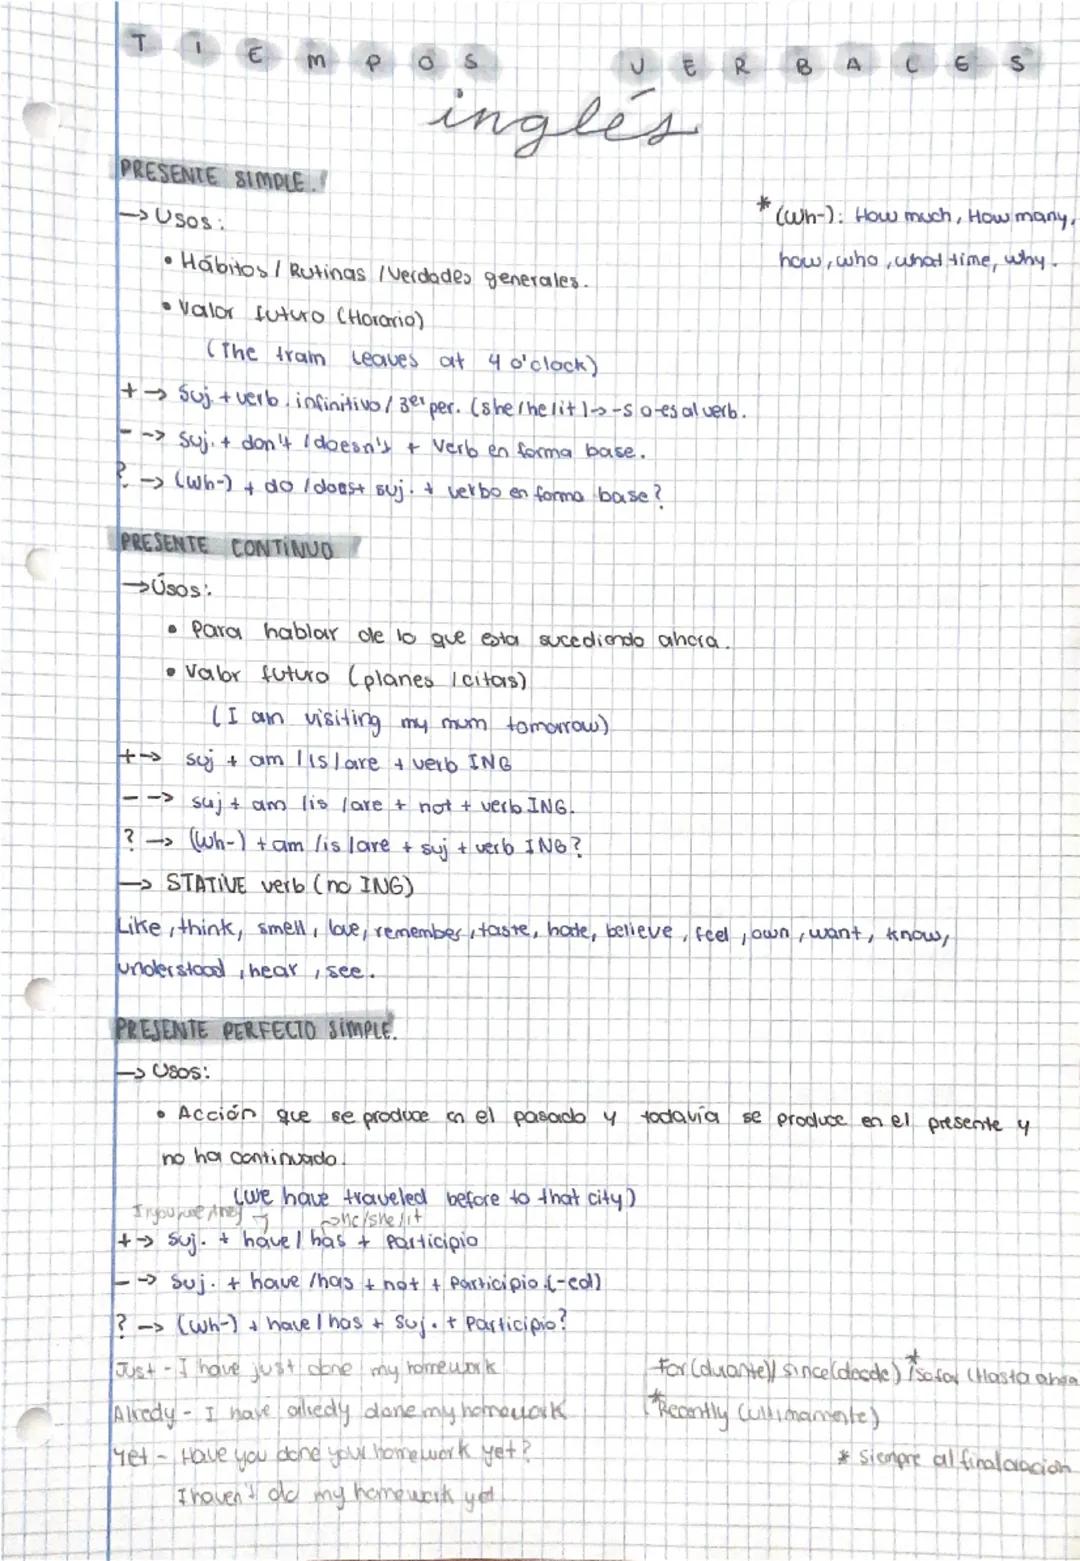 TIEMPOS VERBALES
inglés
PRESENTE SIMPLE.
→ Usos:
* (Wh-): How much, How many,
how, who, what time, why.
• Hábitos / Rutinas / Verdades generales.
• Valor futuro (Horario)
(The train leaves at 4 o'clock)
+ → Suj. + verb. infinitivo / 3er per. (she/he/it) → -s o -es al verb.
- → Suj. + don't / doesn't + Verb en forma base.
? → (Wh-) + do / does + suj. + verbo en forma base?
PRESENTE CONTINUO
→ Úsos:
• Para hablar de lo que esta sucediendo ahora.
• Valor futuro (planes / citas)
(I am visiting my mum tomorrow)
+ → suj + am / is / are + verb ING
- → suj + am / is / are + not + verb ING.
? → (Wh-) + am / is / are + suj + verb ING?
→ STATIVE verb (no ING)
Like, think, smell, love, remember, taste, hate, believe, feel, own, want, know,
understood, hear, see.
PRESENTE PERFECTO SIMPLE.
→ Usos:
• Acción que se produce en el pasado y todavía se produce en el presente y
no ha continuado.
(We have traveled before to that city)
I/you/we/they → he/she/it
+ → Suj. + have / has + Participio
- → Suj. + have / has + not + Participio. (-ed)
? → (Wh-) + have / has + Suj. + Participio?
Just - I have just done my homework
For (durante) / Since (desde) / *So far (Hasta ahora
Alredy - I have alredy done my homework
*Recently (ultimamente)
Yet - Have you done your homework yet?
* siempre al final oracion
I haven't do my homework yet.